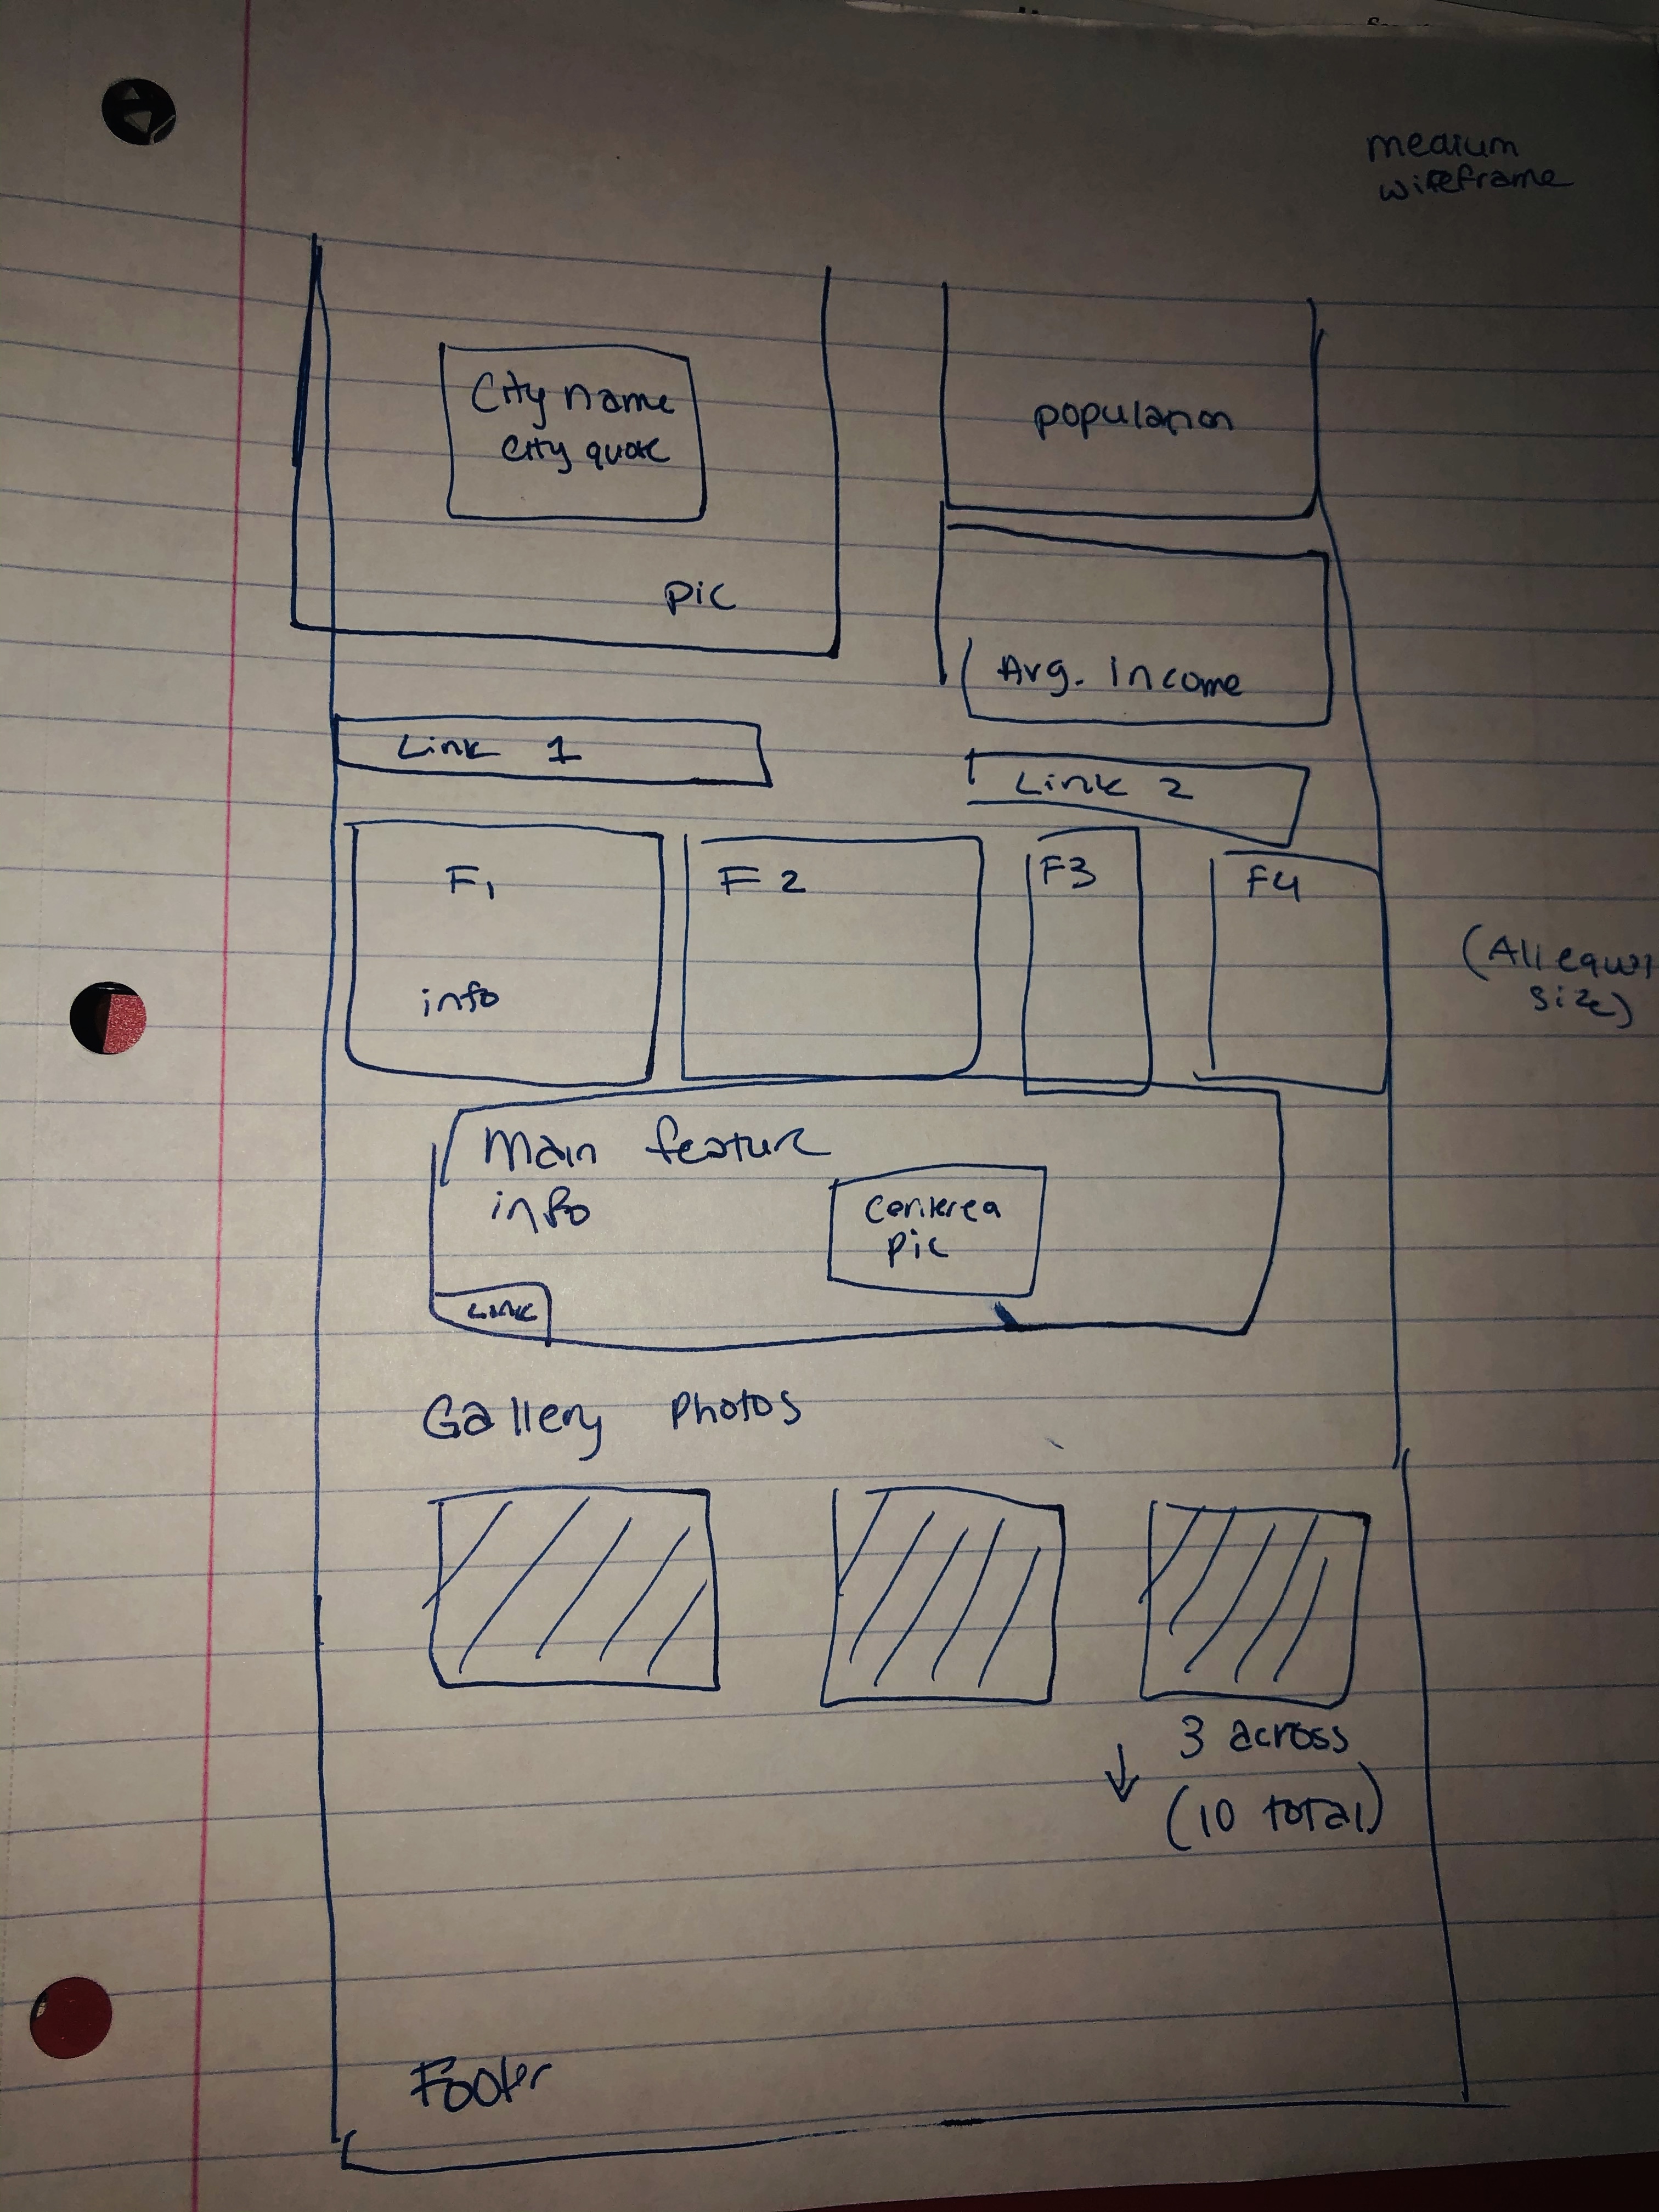 medium
wireframe
City name
city quote
pic
population
Avg. income
Link 1
Link 2
F1
info
F2
F3
F4
(All equal
size)
Main feature
info
Centered
pic
Link
Gallery Photos
3 across
↓ (10 total)
Footer